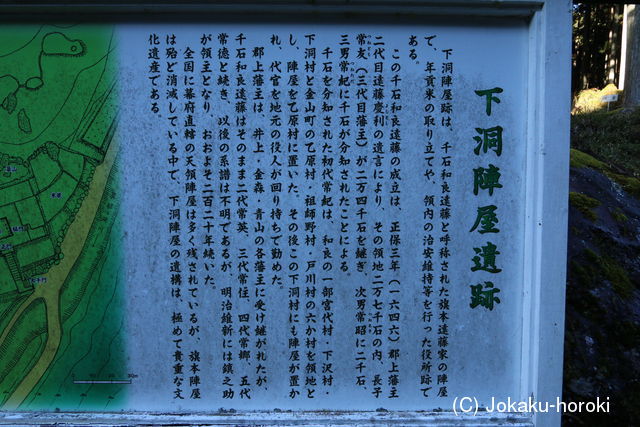 下洞陣屋遺跡
下洞陣屋跡は、千石和良遠藤と呼称された旗本遠藤家の陣屋
で、年貢米の取り立てや、領内の治安維持等を行った役所跡で
ある。
この千石和良遠藤の成立は、正保三年(一六四六)郡上藩主
二代目遠藤慶利の遺言により、その領地二万七千石の内、長子
常友(三代目藩主)が二万四千石を継ぎ、次男常昭に二千石、
三男常紀に千石が分知されたことによる。
千石を分知された初代常紀は、和良の一部宮代村・下沢村・
下洞村と金山町の乙原村・祖師野村・戸川村の六か村を領地と
し、陣屋を乙原村に置いた。その後この下洞村にも陣屋が置か
れ、代官を地元の役人が回り持ちで勤めた。
郡上藩主は、井上・金森・青山の各藩主に受け継がれたが、
千石和良遠藤はそのまま二代常英、三代常住、四代常郷、五代
常徳と続き、以後の系譜は不明であるが、明治維新には鎮之助
が領主となり、おおよそ二百二十年続いた。
全国に幕府直轄の天領陣屋は多く残されているが、旗本陣屋
は殆ど消滅している中で、下洞陣屋の遺構は、極めて貴重な文
化遺産である。
30m
(C) Jokaku-horoki